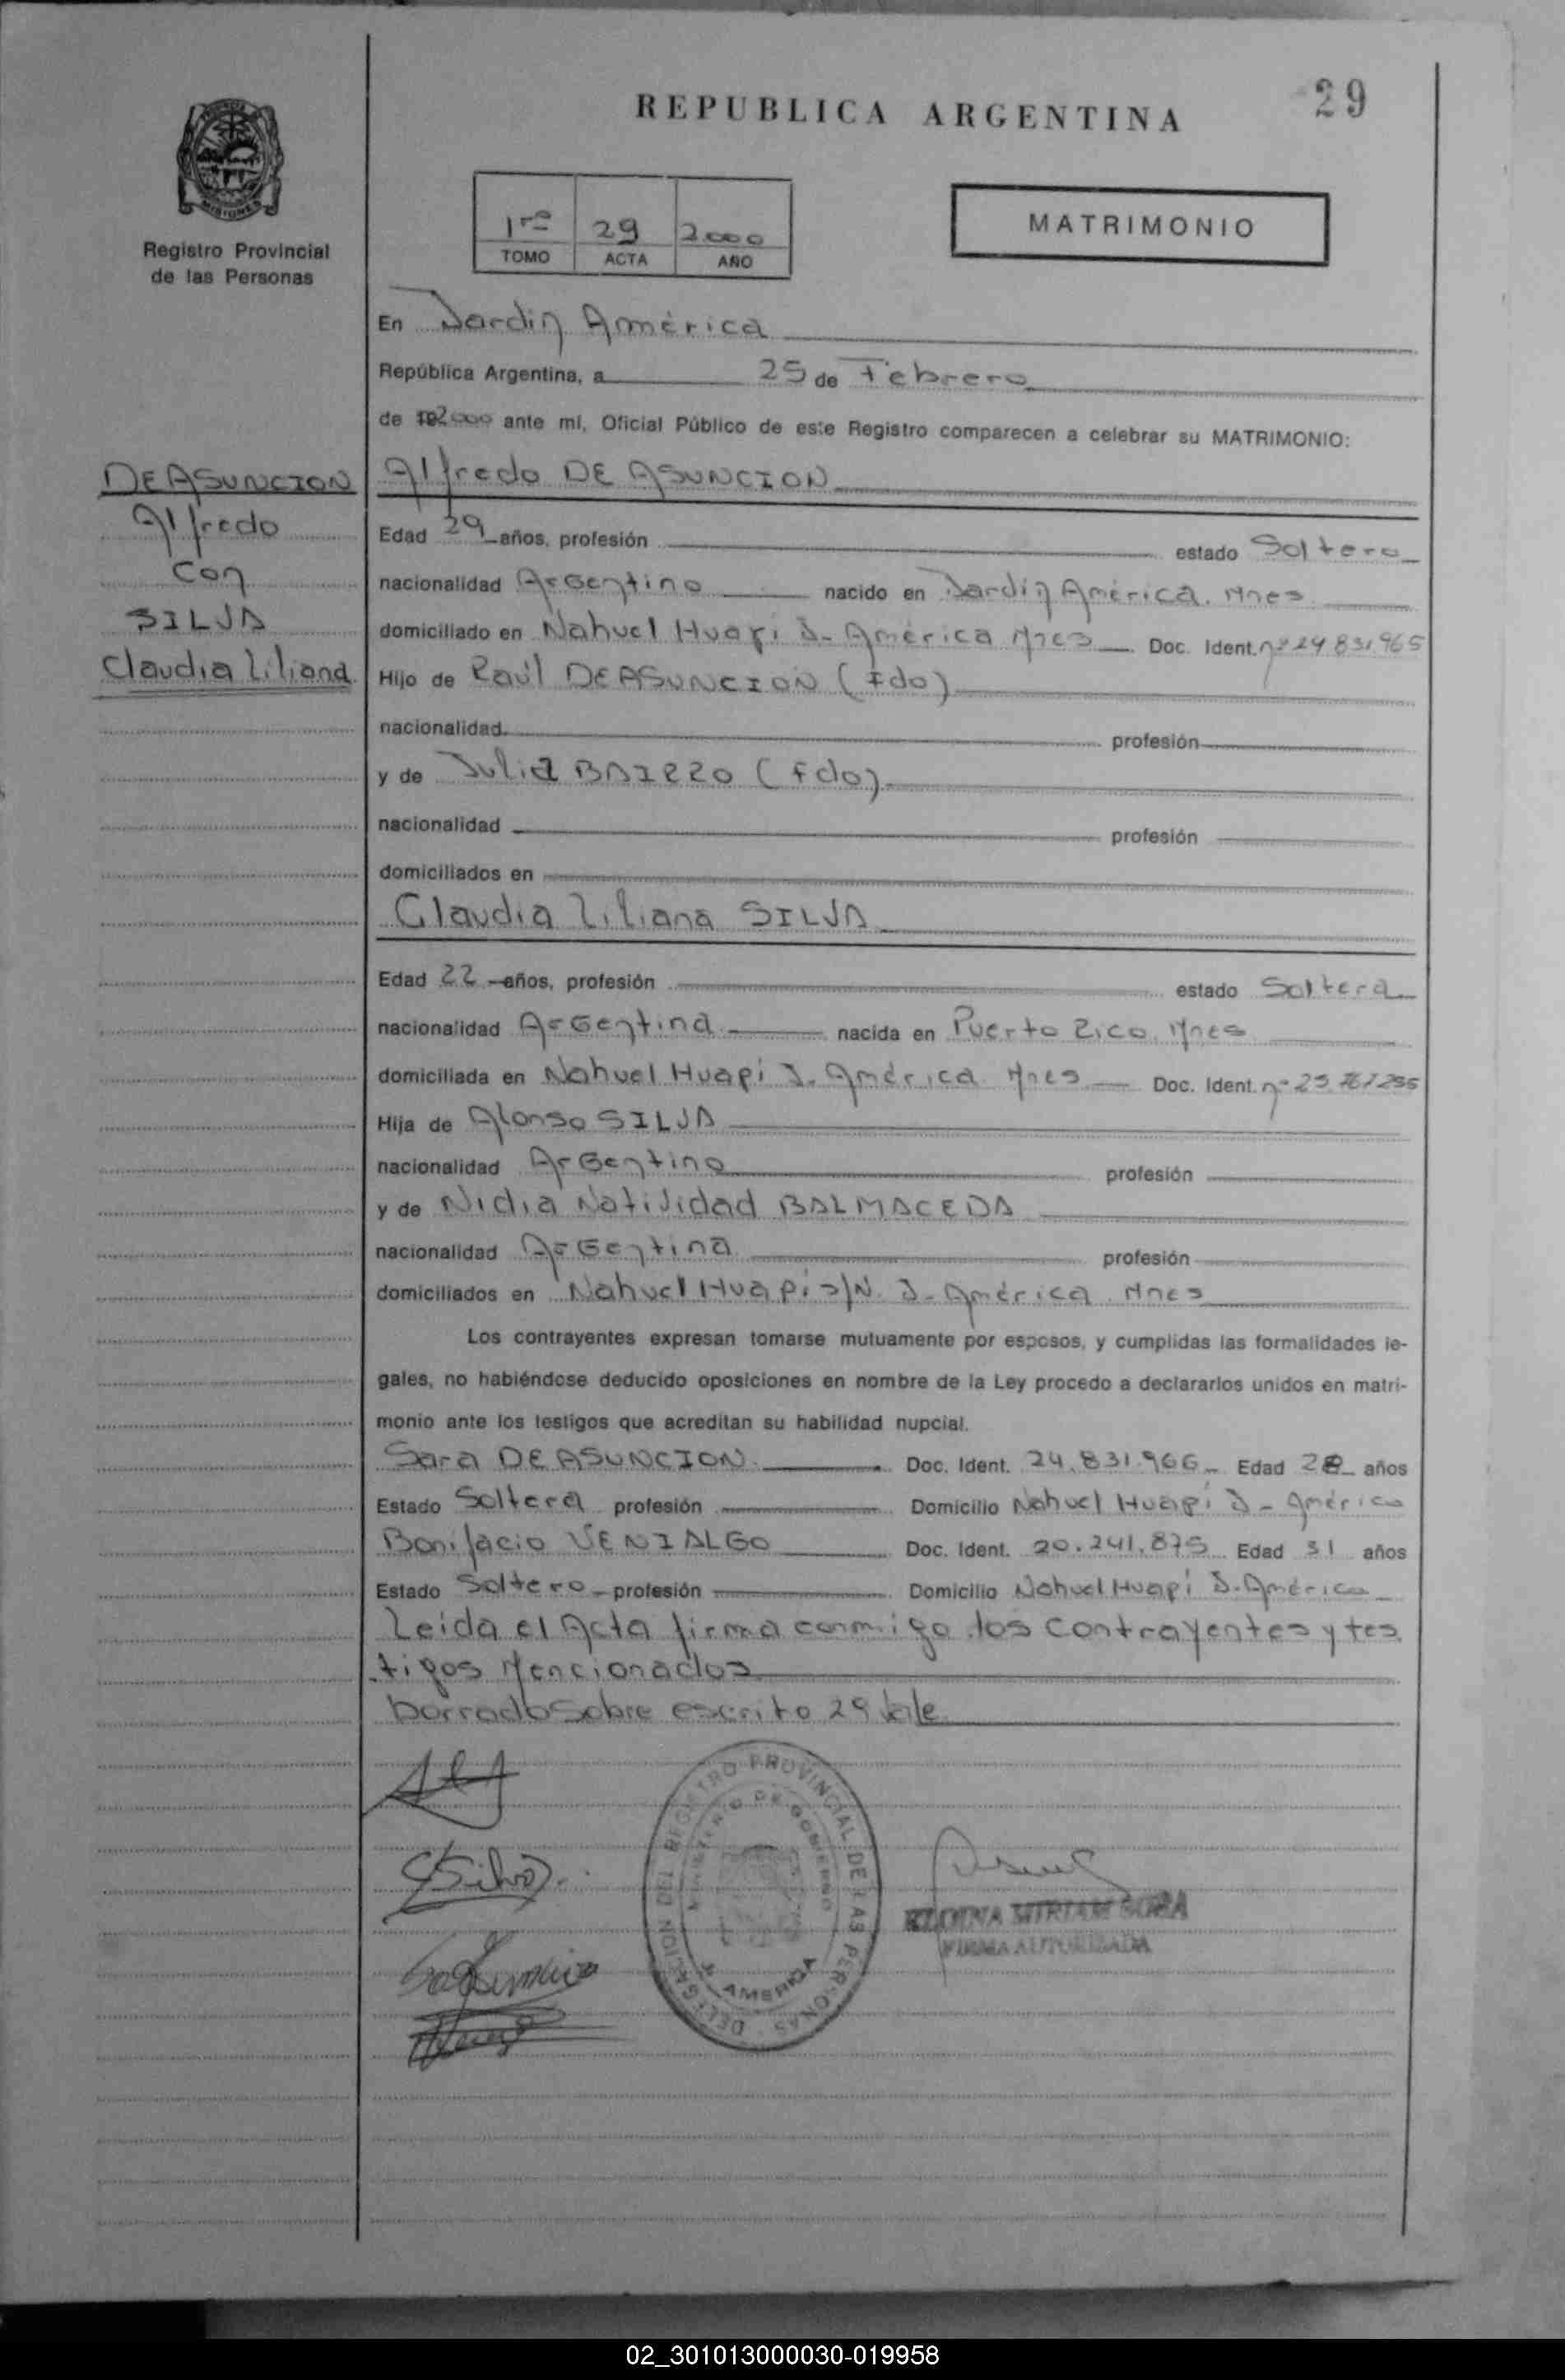 29
REPUBLICA ARGENTINA
MATRIMONIO
1ro 29 2.000
TOMO ACTA AÑO
MISIONES
Registro Provincial
de las Personas
DEASUNCION
Alfredo
Con
SILVA
Claudia Liliana
En Jardin América
República Argentina, a 25 de Febrero
de 192000 ante mí, Oficial Público de este Registro comparecen a celebrar su MATRIMONIO:
Alfredo DEASUNCION
Edad 29 años, profesión estado Soltero
nacionalidad Argentino nacido en Jardin América. Mnes
domiciliado en Nahuel Huapi J. América Mnes Doc. Ident. nº 24 831.965
Hijo de Raúl DEASUNCION (Fdo)
nacionalidad profesión
y de Julia BAIRRO (fdo)
nacionalidad profesión
domiciliados en
Claudia Liliana SILVA
Edad 22 años, profesión estado Soltera
nacionalidad Argentina nacida en Puerto Rico, Mnes
domiciliada en Nahuel Huapi J. América Mnes Doc. Ident. nº
Hija de Alonso SILVA
nacionalidad Argentino profesión
y de Nidia Natividad BALMACEDA
nacionalidad Argentina profesión
domiciliados en Nahuel Huapi S/N. J. América. Mnes
Los contrayentes expresan tomarse mutuamente por esposos, y cumplidas las formalidades le-
gales, no habiéndose deducido oposiciones en nombre de la Ley procedo a declararlos unidos en matri-
monio ante los testigos que acreditan su habilidad nupcial.
Sara DEASUNCION Doc. Ident. 24.831.966 Edad 28 años
Estado Soltera profesión Domicilio Nahuel Huapi J. América
Bonifacio VENIALGO Doc. Ident. 20.241.875 Edad 31 años
Estado Soltero profesión Domicilio Nahuel Huapi J. América
Leida el Acta firma conmigo los contrayentes y tes
tigos Mencionados
borrado sobre escrito 29 Vale
CSilva
DELEGACION DEL REGISTRO PROVINCIAL DE LAS PERSONAS
MINISTERIO DE GOBIERNO
J. AMERICA
MIRIAM SOSA
FIRMA AUTORIZADA
02_301013000030-019958